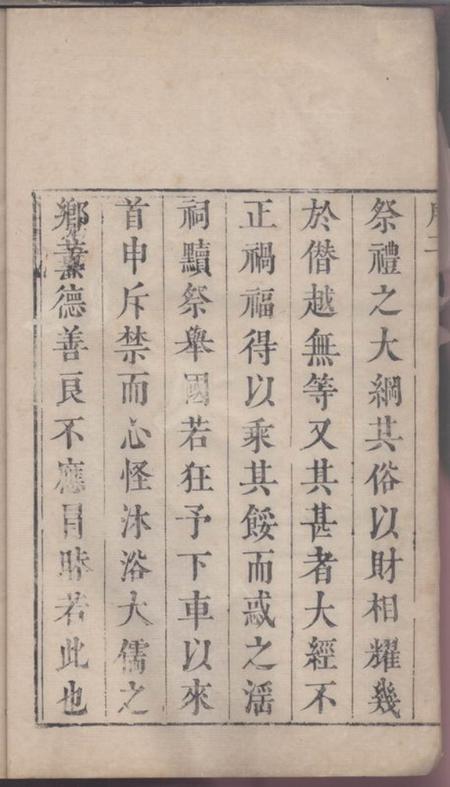 祭禮之大綱其俗以財相耀幾
於僭越無等又其甚者大經不
正禍福得以乘其餒而惑之淫
祠黷祭舉國若狂予下車以來
首申斥禁而心怪沐浴大儒之
鄉薰德善良不應冒昧若此也